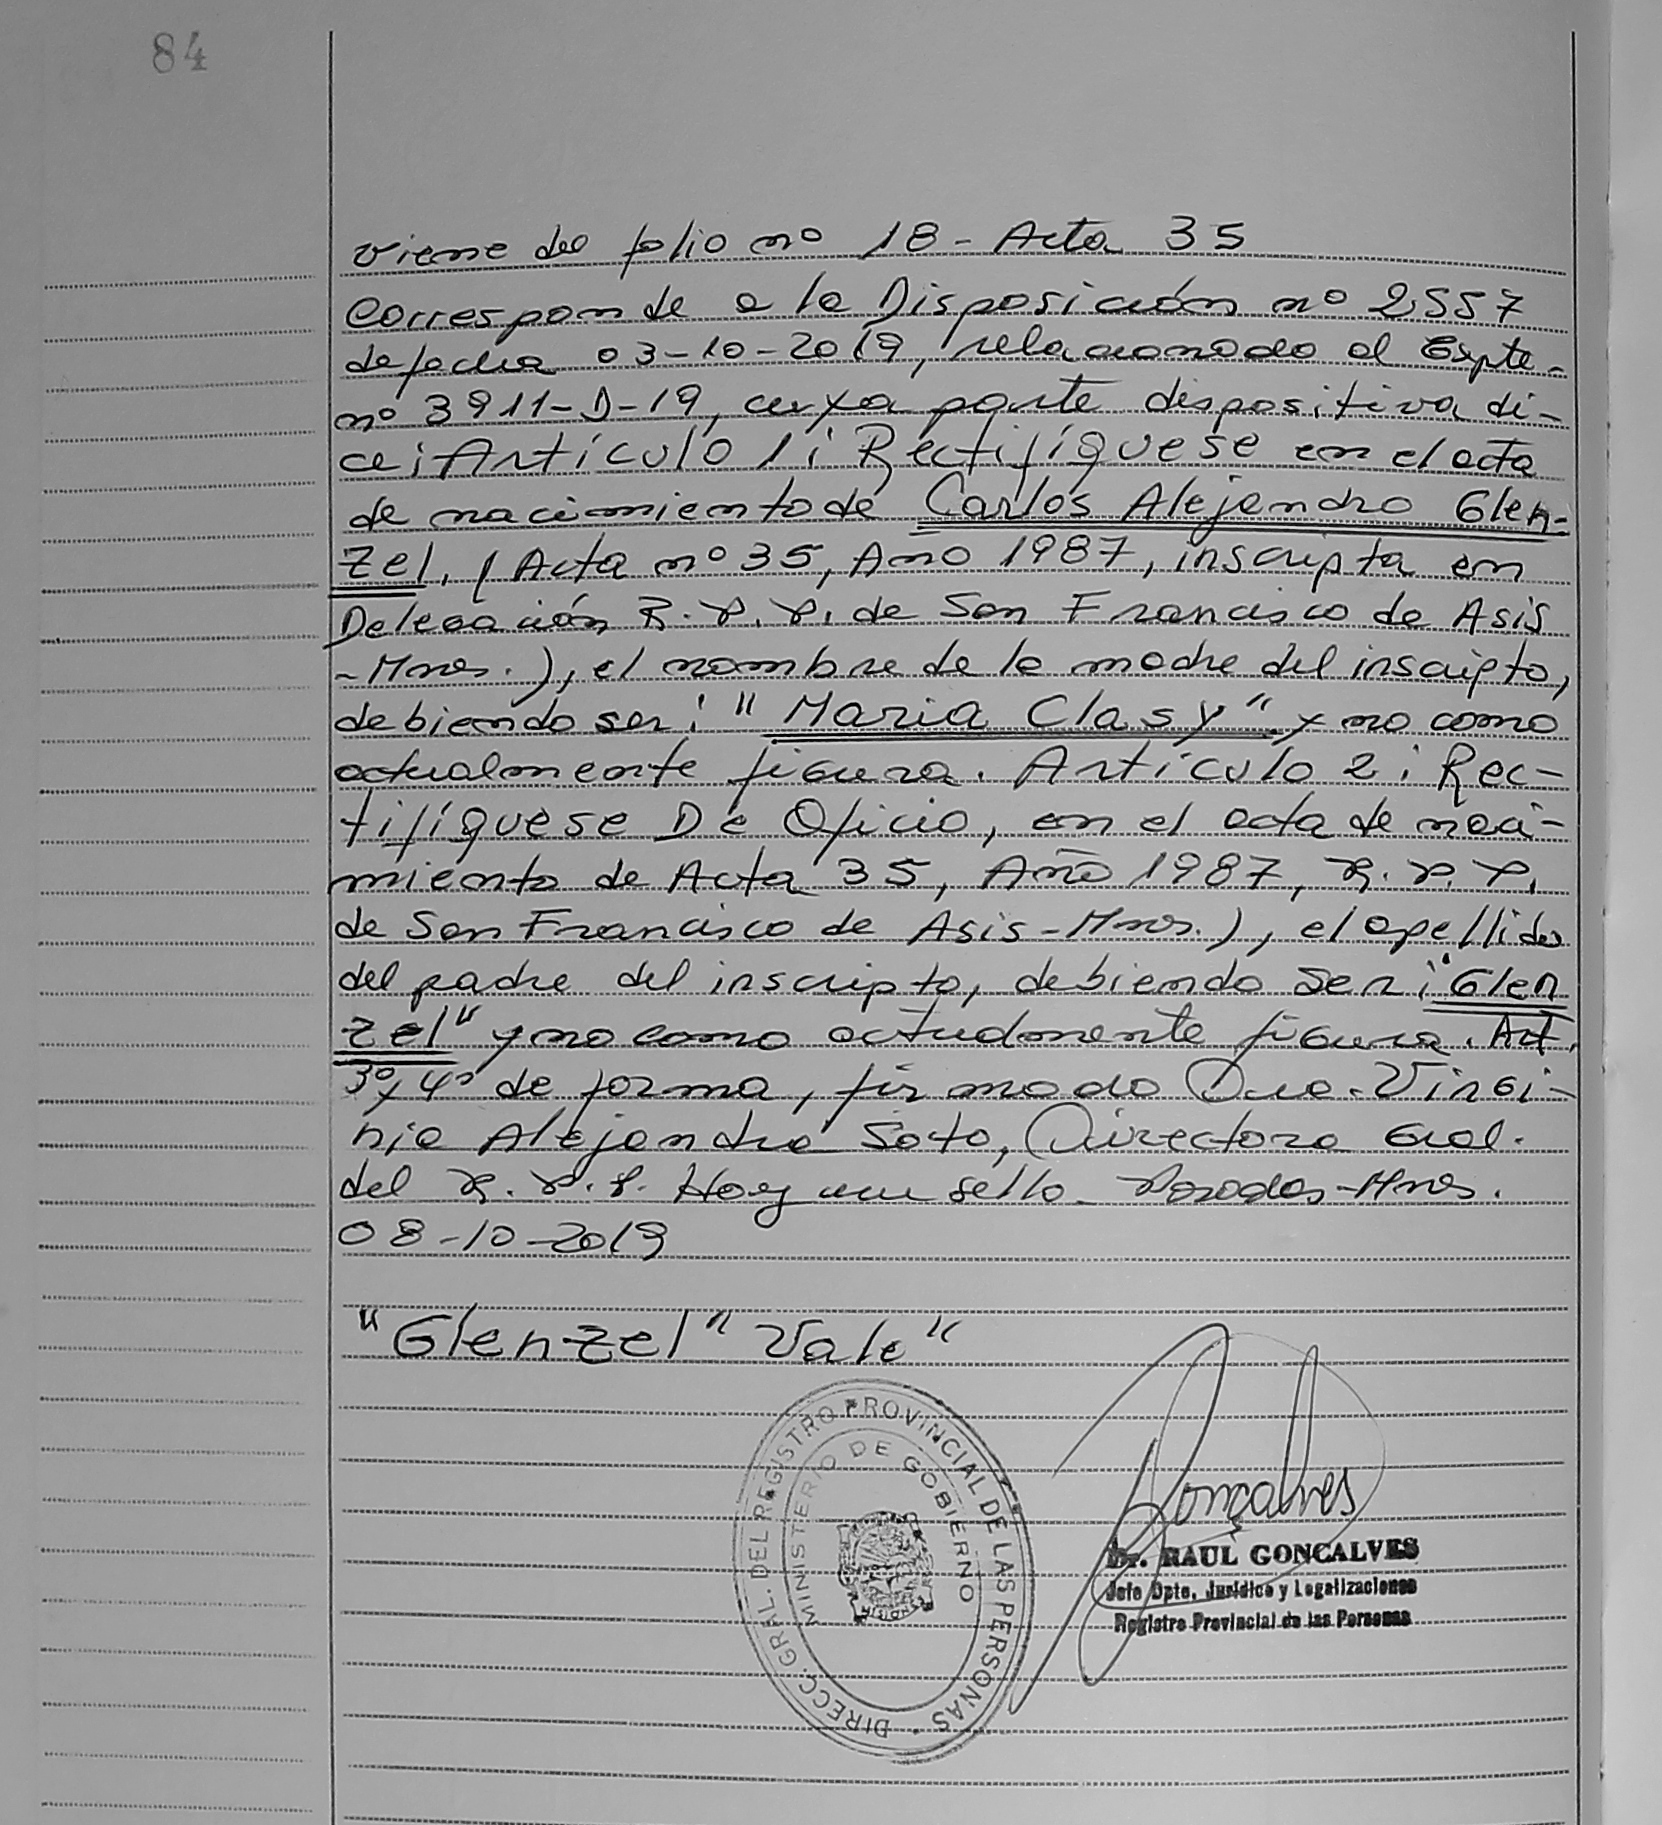 84
viene del folio nº 18 - Acta 35
Corresponde a la Disposición nº 2557
de fecha 03-10-2019, relacionado al Expte.
nº 3911-D-19, cuya parte dispositiva di-
ce: Artículo 1: Rectifíquese en el acta
de nacimiento de Carlos Alejandro Glen-
zel, (Acta nº 35, Año 1987, inscripta en
Delegación R.P.P. de San Francisco de Asis
-Mnes.), el nombre de la madre del inscripto,
debiendo ser: "Maria Clasy" y no como
actualmente figura. Artículo 2: Rec-
tifíquese De Oficio, en el acta de naci-
miento de Acta 35, Año 1987, R.P.P.
de San Francisco de Asis-Mnes.), el apellido
del padre del inscripto, debiendo ser: "Glen
zel" y no como actualmente figura. Art.
3º y 4º de forma, firmado Dra. Virgi-
nia Alejandra Soto, Directora Gral.
del R.P.P. Hay un sello. Posadas-Mnes.
08-10-2019
"Glenzel" Vale"
DIRECC. GRAL. DEL REGISTRO PROVINCIAL DE LAS PERSONAS
MINISTERIO DE GOBIERNO
MISIONES
Gonçalves
Dr. RAUL GONCALVES
Jefe Dpto. Jurídico y Legalizaciones
Registro Provincial de las Personas